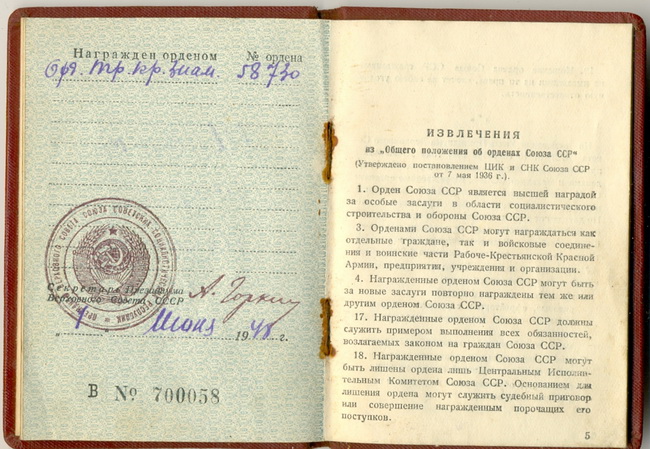 Награжден орденом № ордена
Орд. Тр. Кр. Знам. 58730
СОЮЗА СОВЕТСКИХ СОЦИАЛИСТИЧЕСКИХ
Секретарь Президиума
Верховного Совета СССР А. Горкин
Июня 1948 г.
В № 700058
ИЗВЛЕЧЕНИЯ
из „Общего положения об орденах Союза ССР“
(Утверждено постановлением ЦИК и СНК Союза ССР
от 7 мая 1936 г.).
1. Орден Союза ССР является высшей наградой
за особые заслуги в области социалистического
строительства и обороны Союза ССР.
3. Орденами Союза ССР могут награждаться как
отдельные граждане, так и войсковые соедине-
ния и воинские части Рабоче-Крестьянской Красной
Армии, предприятия, учреждения и организации.
4. Награжденные орденом Союза ССР могут быть
за новые заслуги повторно награждены тем же или
другим орденом Союза ССР.
17. Награжденные орденом Союза ССР должны
служить примером выполнения всех обязанностей,
возлагаемых законом на граждан Союза ССР.
18. Награжденные орденом Союза ССР могут
быть лишены ордена лишь Центральным Исполни-
тельным Комитетом Союза ССР. Основанием для
лишения ордена могут служить судебный приговор
или совершение награжденным порочащих его
поступков.
5